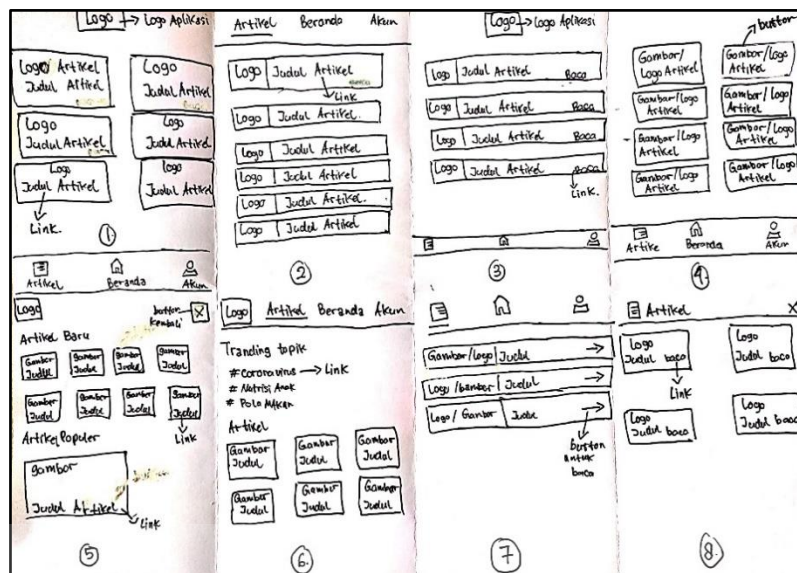 Logo → Logo Aplikasi
Logo Artikel
Judul Artikel
Logo
Judul Artikel
Logo
Judul Artikel
Logo
Judul Artikel
Logo
Judul Artikel
Logo
Judul Artikel
Link.
1
Artikel Beranda Akun
Logo Judul Artikel
Link
Logo Judul Artikel.
Logo Judul Artikel
Logo Judul Artikel
Logo Judul Artikel.
Logo Judul Artikel
2
Logo → Logo Aplikasi
Logo Judul Artikel Baca
Logo Judul Artikel Baca
Logo Judul Artikel Baca
Logo Judul Artikel Baca
Link.
3
button
Gambar/
Logo Artikel
Gambar/Logo
Artikel
Gambar/Logo
Artikel
Gambar/Logo
Artikel
Gambar/Logo
Artikel
Gambar/Logo
Artikel
Gambar/Logo
Artikel
Gambar/Logo
Artikel
Artike Beranda Akun
4
Artikel Beranda Akun
Logo
button
kembali
X
Artikel Baru
Gambar
Judul
Gambar
Judul
Gambar
Judul
Gambar
Judul
Gambar
Judul
Gambar
Judul
Gambar
Judul
Gambar
Judul
Link
Artikel Populer
gambar
Judul Artikel
Link
5
Logo Artikel Beranda Akun
Tranding topik
#coronavirus → Link
# Nutrisi Anak
# Pola Makan
Artikel
Gambar
Judul
Gambar
Judul
Gambar
Judul
Gambar
Judul
Gambar
Judul
Gambar
Judul
6.
Gambar/logo Judul →
Logo/Gambar Judul →
Logo/Gambar Judul →
button
untuk
baca
7
Artikel X
Logo
Judul baca
Logo
Judul baca
Link
Logo
Judul baca
Logo
Judul baca
8.